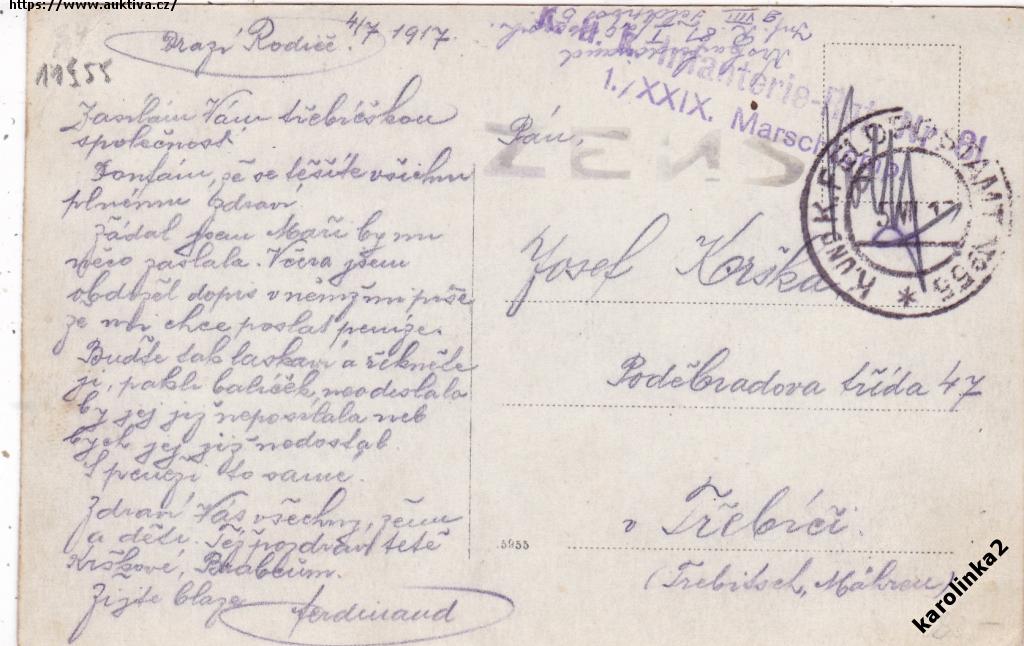 https://www.auktiva.cz/
4/7 1917.
Drazí Rodiče.
11955
Zasílám Vám třebíčskou
společnost.
Doufám, že se těšíte všichni
plnému zdraví
Žádal jsem Maři by mi
něco zaslala. Včera jsem
obdržel dopis v němž mi píše
že mi chce poslat peníze.
Buďte tak laskaví a řekněte
ji, pakli balíček neodeslala
by jej již neposílala neb
bych jej již nedostal.
S penězi to samé.
Zdraví Vás všechny, ženu
a děti. Též pozdrav tetě
Krškové, Brabcům.
Žijte blaze Ferdinand
K. u. k. Infanterie-Nr. 81
1./XXIX. Marschkomp.
ZENS
K. UND K. FELDPOSTAMT No 55
5 VII 17
Pán,
Josef Krška
Poděbradova třída 47
v Třebíči.
(Trebitsch, Mähren)
5955
karolinka2